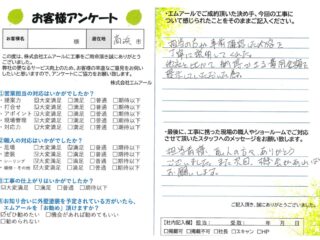 お客様アンケート
お客様名
様
居住地
高浜 市
この度は、株式会社エムアールに工事をご用命頂き誠にありがとうございました。
弊社の更なるサービス向上のため、お客様の率直なご意見をお伺いしたいと思いますので、アンケートにご協力をお願い致します。
株式会社エムアール
①営業担当の対応はいかがでしたか?
・提案力 ☑大変満足 □満足 □普通 □期待以下
・打合せ ☑大変満足 □満足 □普通 □期待以下
・アポイント ☑大変満足 □満足 □普通 □期待以下
・現場管理 ☑大変満足 □満足 □普通 □期待以下
・対応力 ☑大変満足 □満足 □普通 □期待以下
②職人の対応はいかがでしたか?
・挨拶 ☑大変満足 □満足 □普通 □期待以下
・マナー ☑大変満足 □満足 □普通 □期待以下
③工事の仕上がりはいかがでしたか?
☑大変満足 □満足 □普通 □期待以下
④お知り合いに外壁塗装を予定されている方がいたら、エムアールを「お勧め」頂けますか?
☑ぜひ勧めたい □機会があれば勧めてもいい
□勧められない
・エムアールでご成約頂いた決め手、今回の工事について感じられたことをそのままご記入ください。
担当の方が事前確認
丁寧に説明してくれた
・最後に、工事に携った現場の職人やショールームでご対応させて頂いたスタッフへのメッセージをお願い致します。
担当者様、職人の方々 ありがとう
ございました。また次回、機会があれば
お願いします。
ご記入頂き、誠にありがとうございました。
【社内記入欄】担当: 受付日: 年 月 日
□掲載可 □掲載不可 □社名 □スキャン □HP